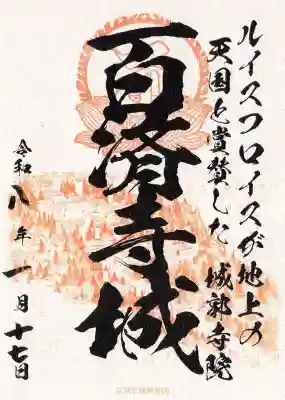 ルイスフロイスが地上の
天国と賞賛した 城郭寺院
百済寺城
令和八年 一月十七日